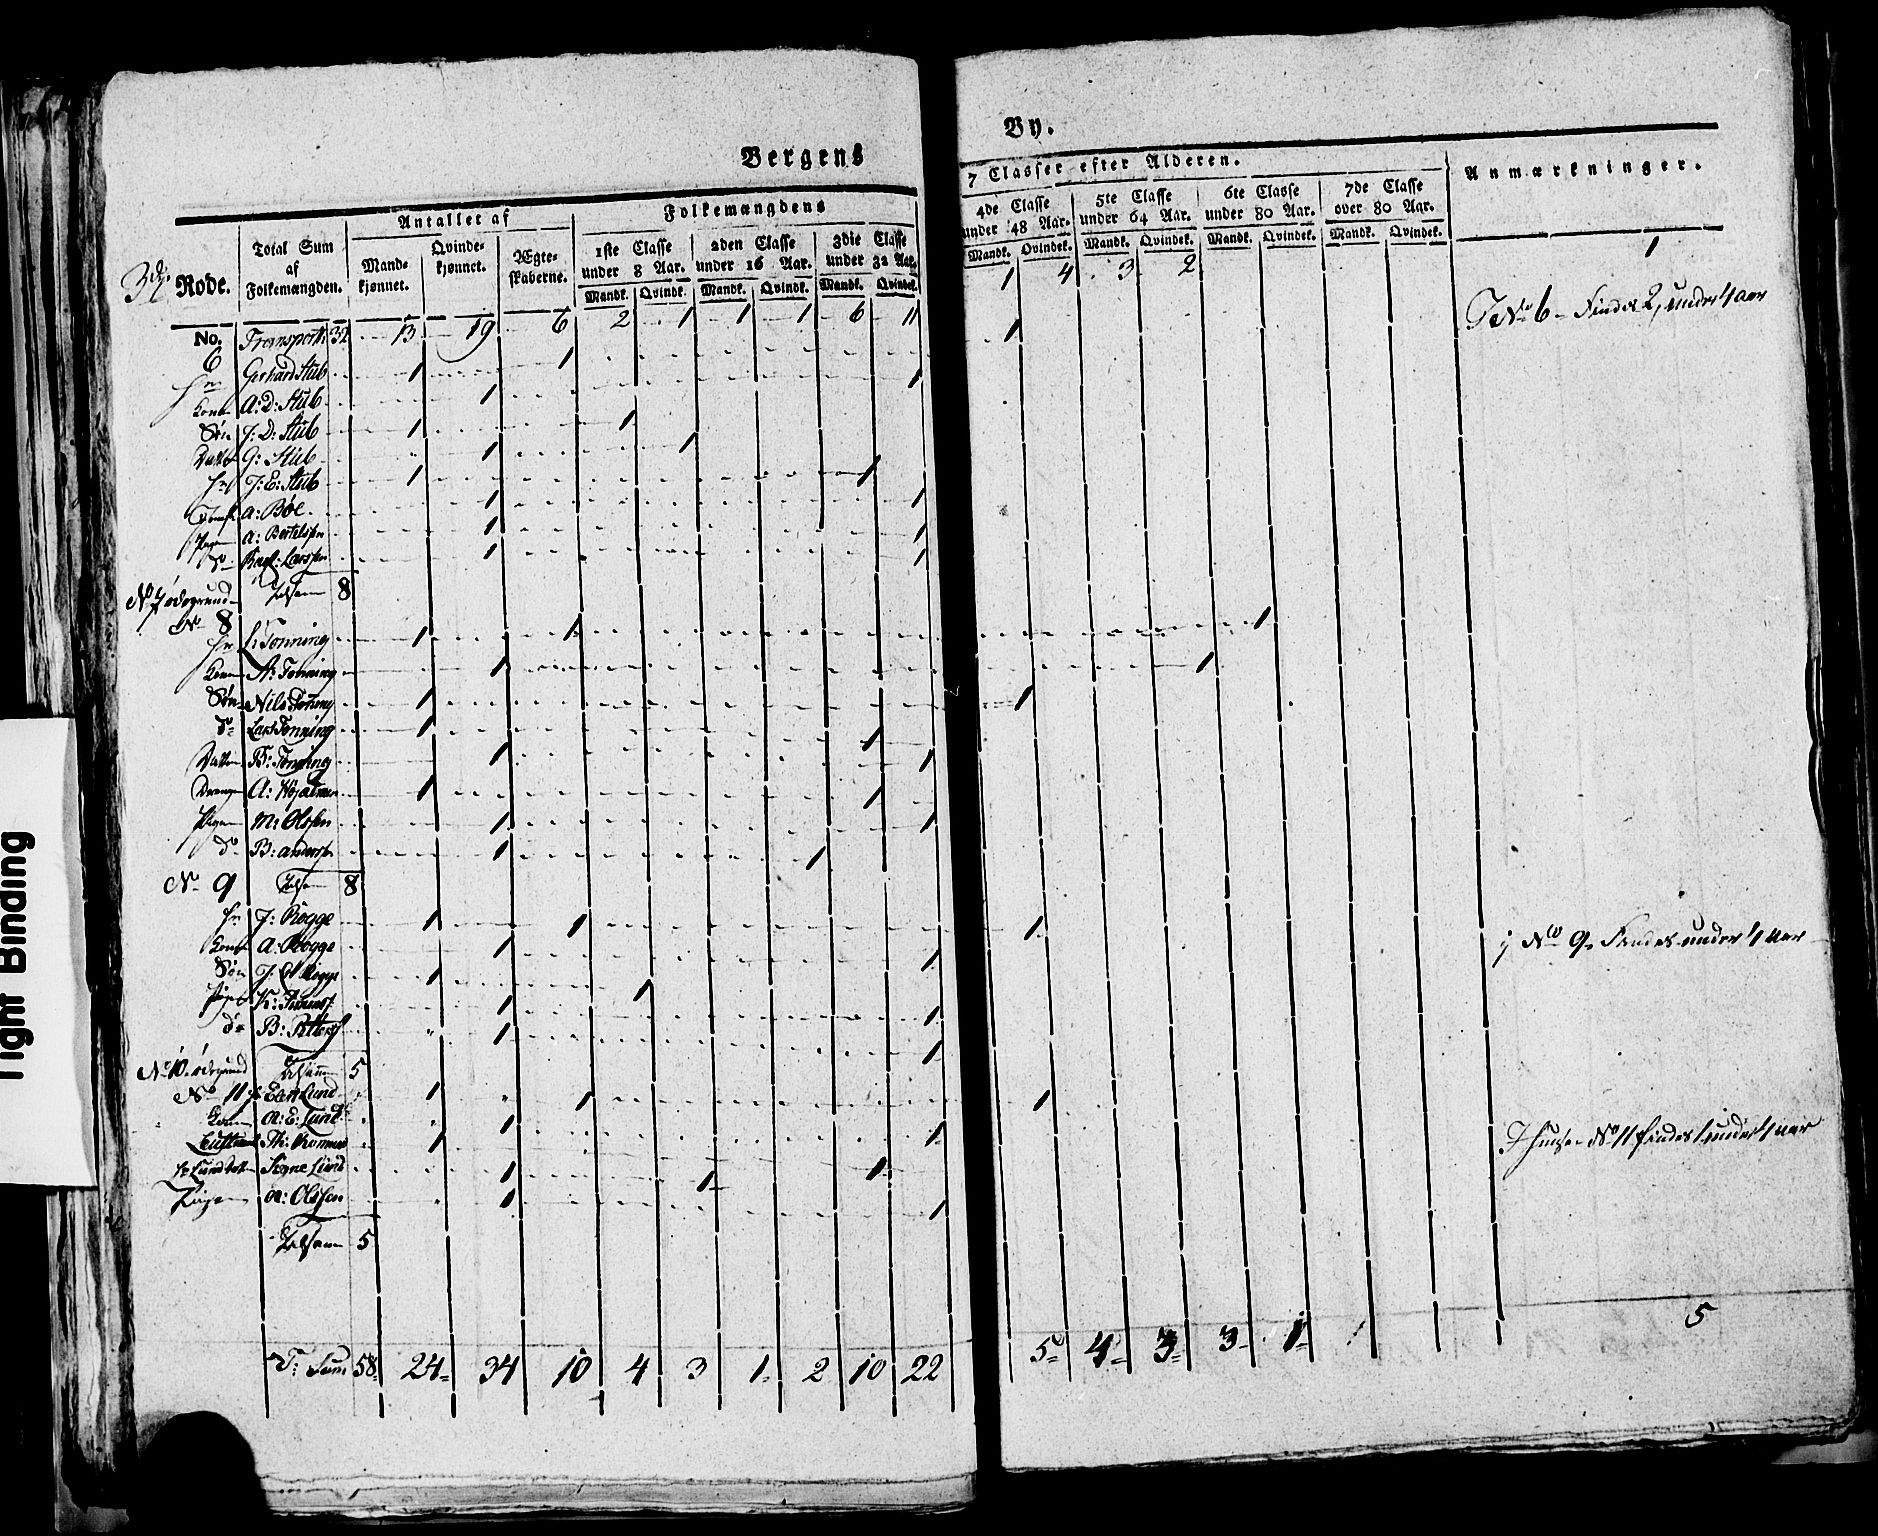 Bergens By.
3de Rode.
Total Sum af Folkemængden.
Antallet af
Mandkjønnet. Qvindekjønnet. Ægteskaberne.
Folkemængdens 7 Classer efter Alderen.
1ste Classe under 8 Aar. 2den Classe under 16 Aar. 3die Classe under 32 Aar. 4de Classe under 48 Aar. 5te Classe under 64 Aar. 6te Classe under 80 Aar. 7de Classe over 80 Aar.
Mandk. Qvindek. Mandk. Qvindek. Mandk. Qvindek. Mandk. Qvindek. Mandk. Qvindek. Mandk. Qvindek. Mandk. Qvindek.
Anmærkninger.
No. Transport 32 13 19 6 2 1 1 1 6 11 1 4 3 2 1
6
Hr Gerhard Stub 1 1 1
Kone A: D: Stub 1 1
Søn J: D: Stub 1 1
Datter G: Stub 1 1
Hr J: E: Stub 1 1
A: Böe 1 1
Pigen A: Bertelssen 1 1
do Larssen 1 1
Tilsam 8
No 7 ödegrund
No 8
Hr L: Tonning 1 1 1
Kone A: Tonning 1 1
Søn Nils Tonning 1 1
do Lars Tonning 1 1
Datter B: Tonning 1 1
Drengen A: 1 1
Pigen M: Olssen 1 1
do B: Anderss 1 1
No 9 Tilsam 8
Hr J: Rogge 1 1 1
Kone A: Rogge 1 1
Søn J: Rogge 1 1
Pige K: 1 1
do B: Petters 1 1
No 10 ödegrund Tilsam 5
No 11 Lund 1 1 1
Kone A: E: Lund 1 1
Th: 1 1
Hr Lund Datter Signe Lund 1 1
Pigen A: Olssen 1 1
Tilsam 5
T: Sum 58 24 34 10 4 3 1 2 10 22 5 4 3 3 1 5
I No 6 Findes 2, under 1 aar
i No 9 Findes under 1 Aar
I Huuset No 11 findes 1 under 1 aar
Tight Binding